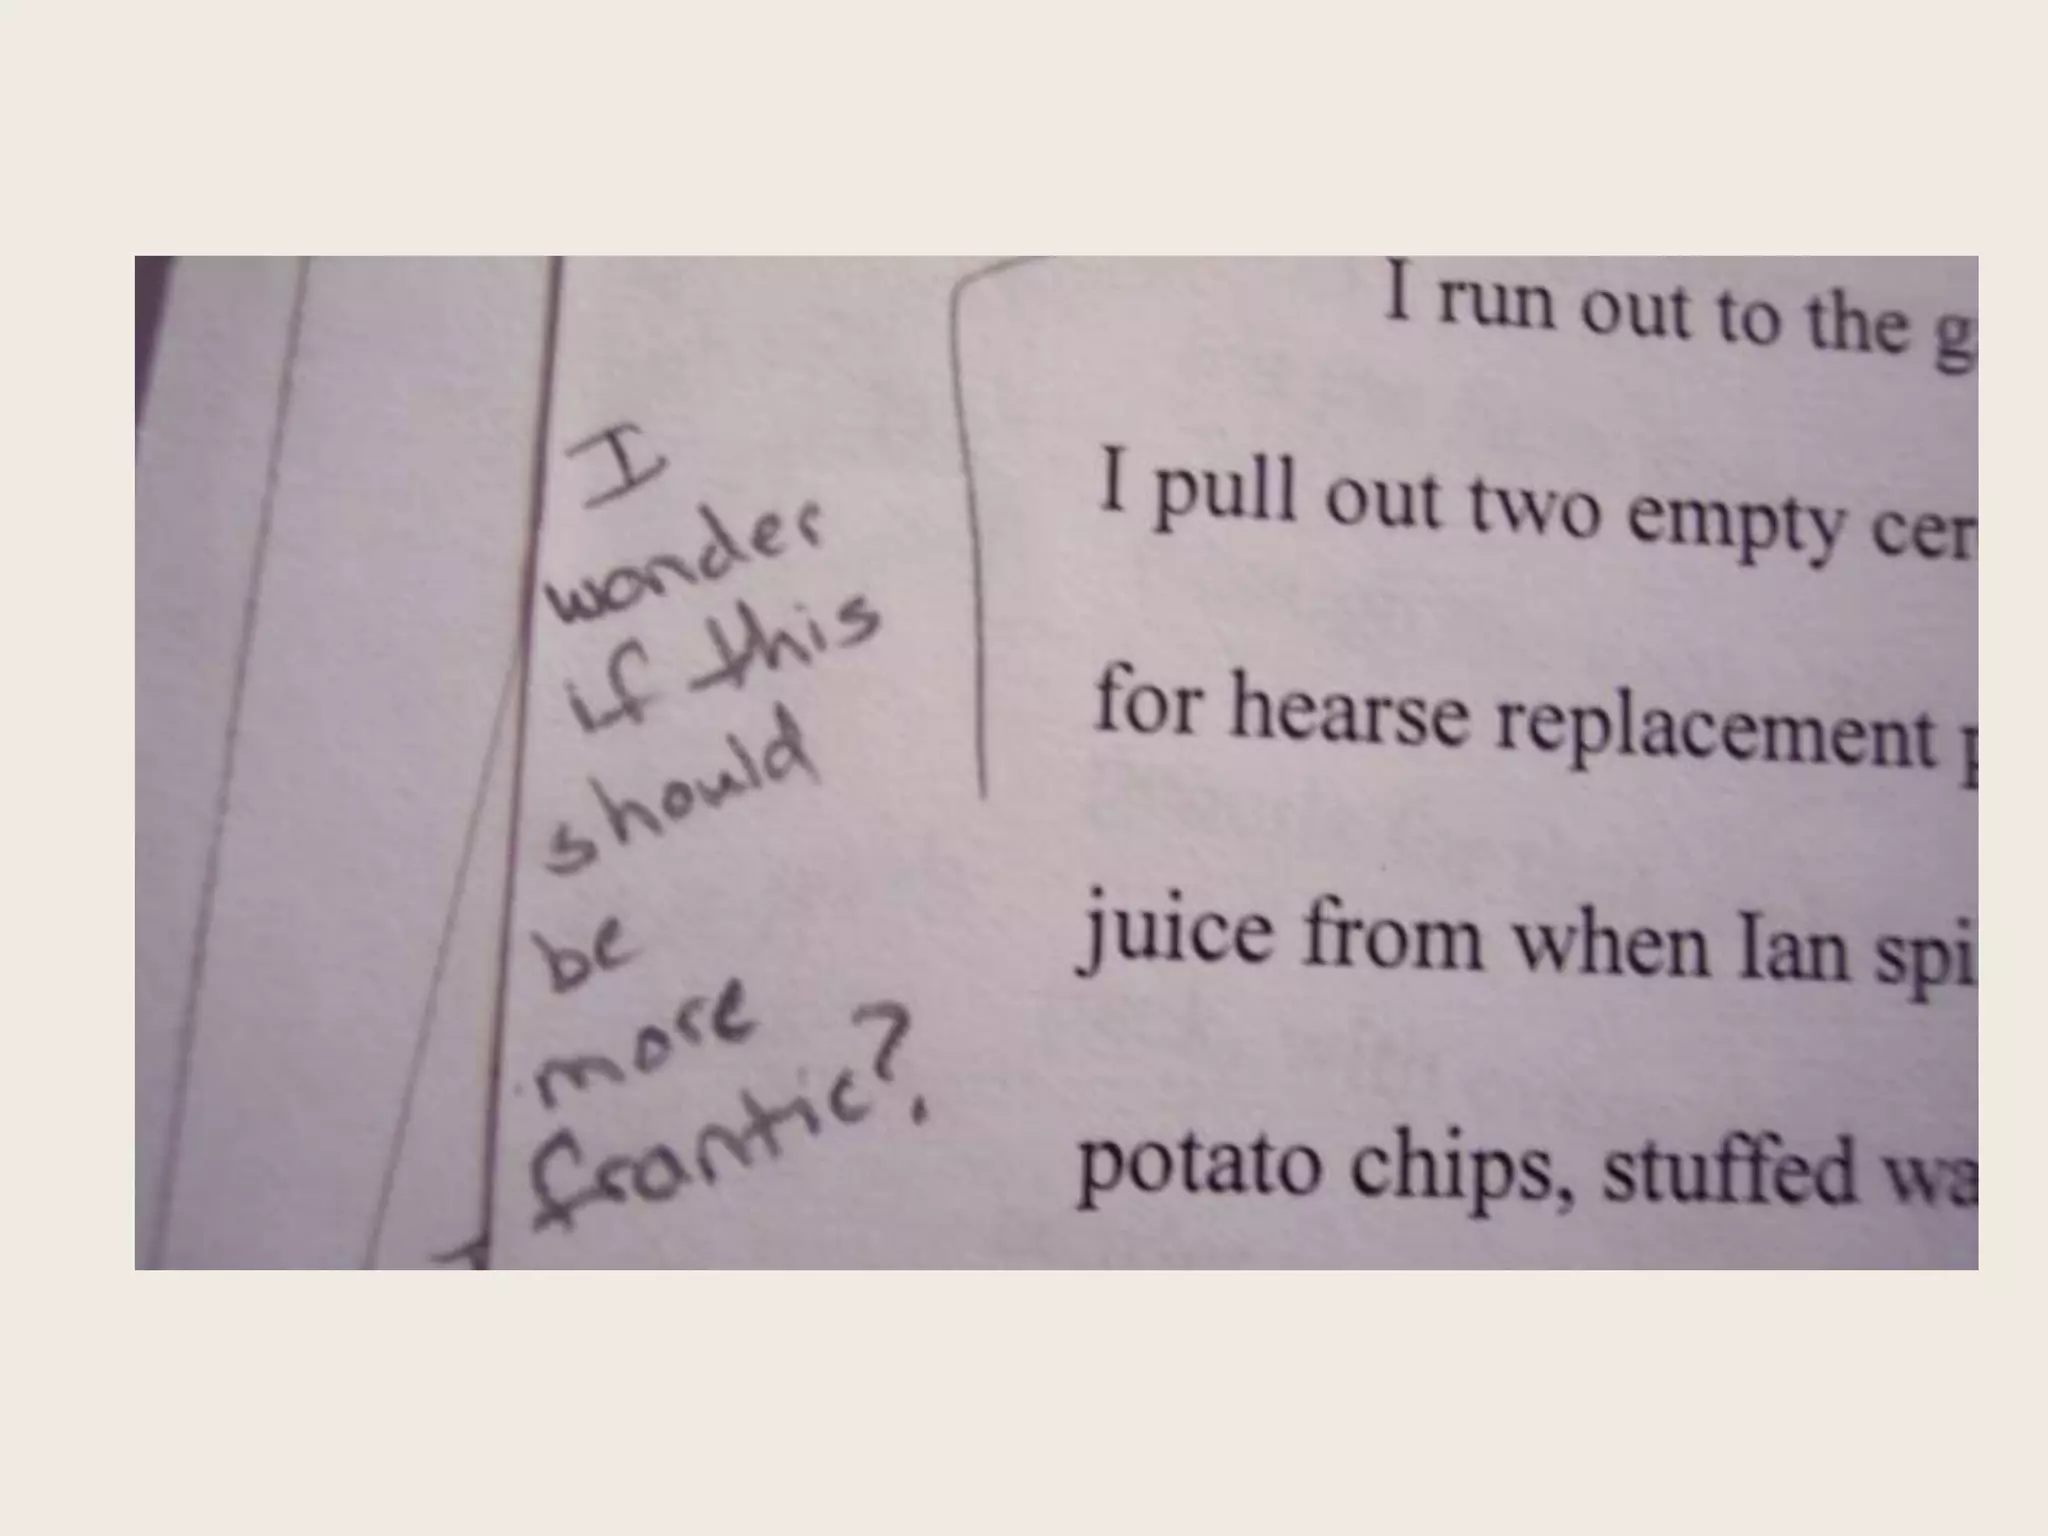 I
wonder
if this
should
be
more
frantic?
I run out to the g
I pull out two empty cer
for hearse replacement p
juice from when Ian spi
potato chips, stuffed wa